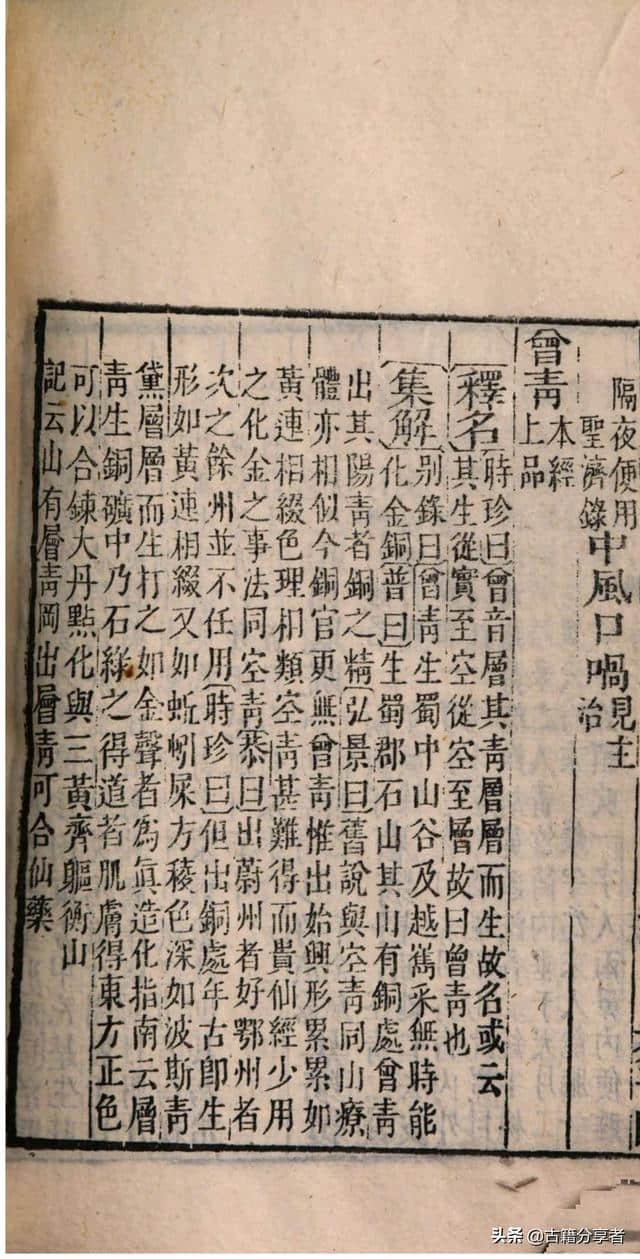 隔夜便用
聖濟錄
中風口喎
見主
治
曾青
本經
上品
釋名
時珍曰曾音層其靑層層而生故名或云
其生從實至空從空至層故曰曾靑也
集解
别錄曰曾靑生蜀中山谷及越嶲采無時能
化金銅普曰生蜀郡石山其山有銅處曾靑
出其陽靑者銅之精弘景曰舊說與空靑同山療
體亦相似今銅官更無曾靑惟出始興形累累如
黃連相綴色理相類空靑甚難得而貴仙經少用
之化金之事法同空靑恭曰出蔚州者好鄂州者
次之餘州並不任用時珍曰但出銅處年古卽生
形如黃連相綴又如蚯蚓屎方稜色深如波斯靑
黛層層而生打之如金聲者爲眞造化指南云層
靑生銅礦中乃石綠之得道者肌膚得東方正色
可以合鍊大丹點化與三黃齊驅衡山
記云山有層靑岡出層靑可合仙藥
头条 @古籍分享者